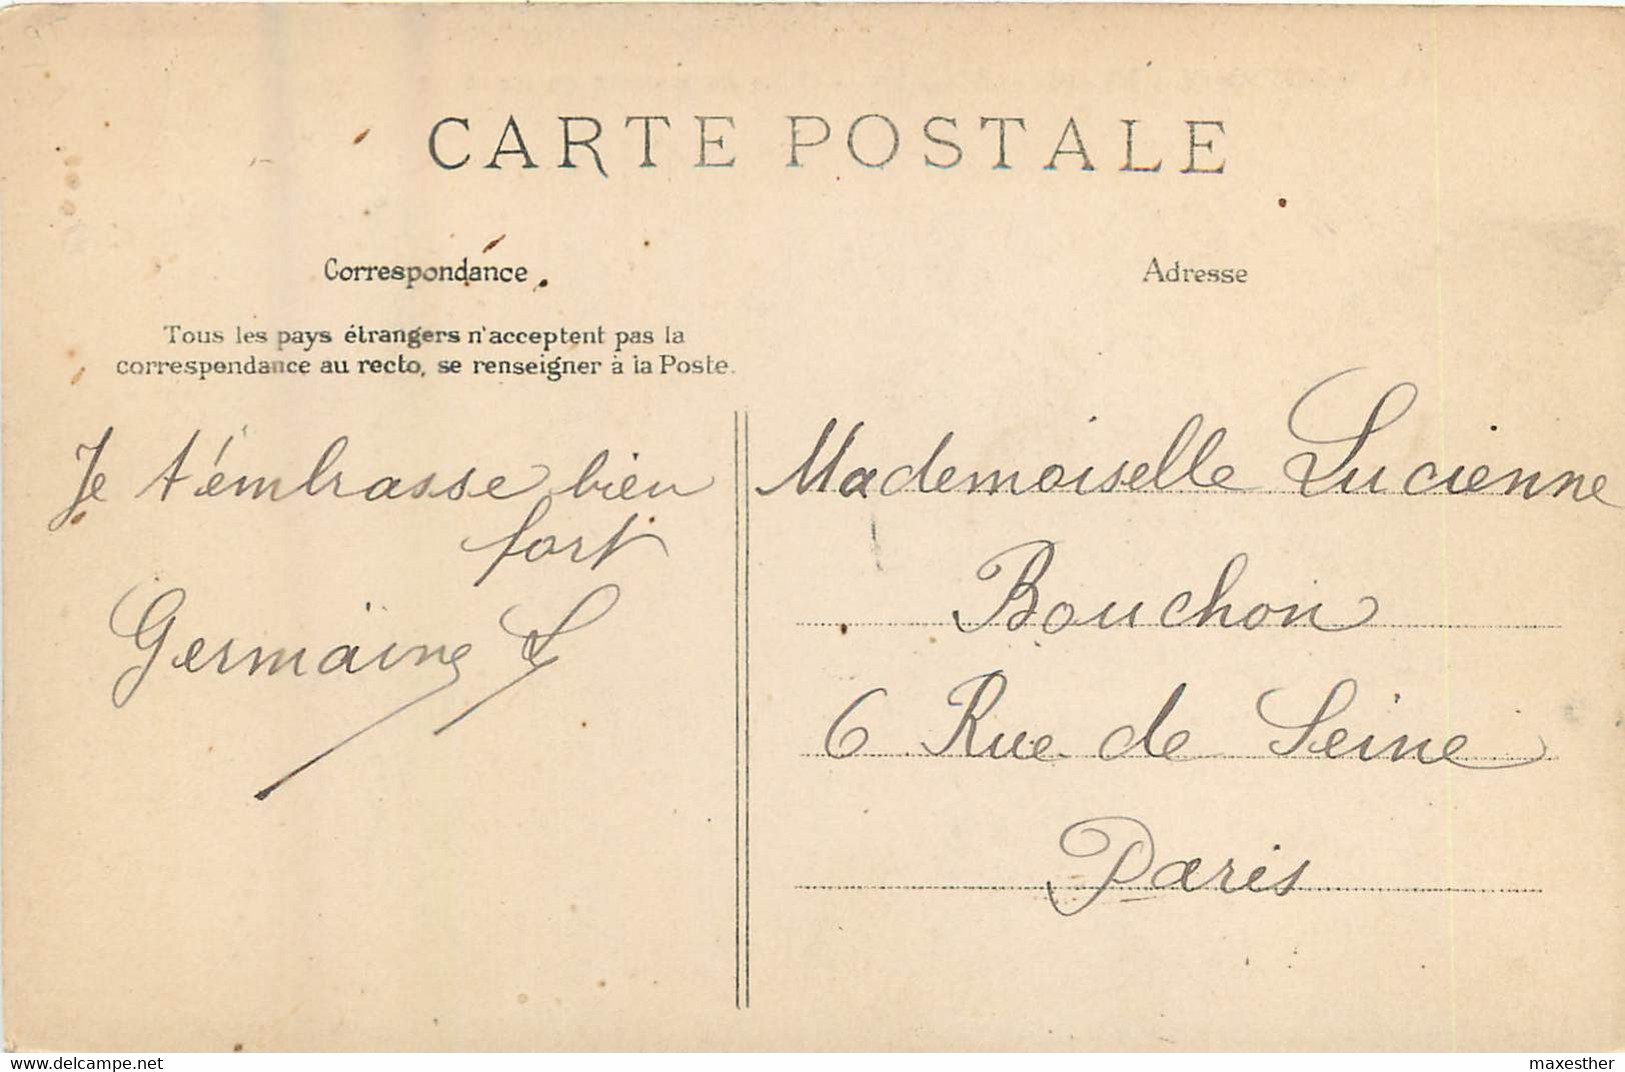 CARTE POSTALE
Correspondance
Tous les pays étrangers n'acceptent pas la
correspondance au recto, se renseigner à la Poste.
Je t'embrasse bien
fort
Germaine L
Adresse
Mademoiselle Lucienne
Bouchon
6 Rue de Seine
Paris
www.delcampe.net
maxesther